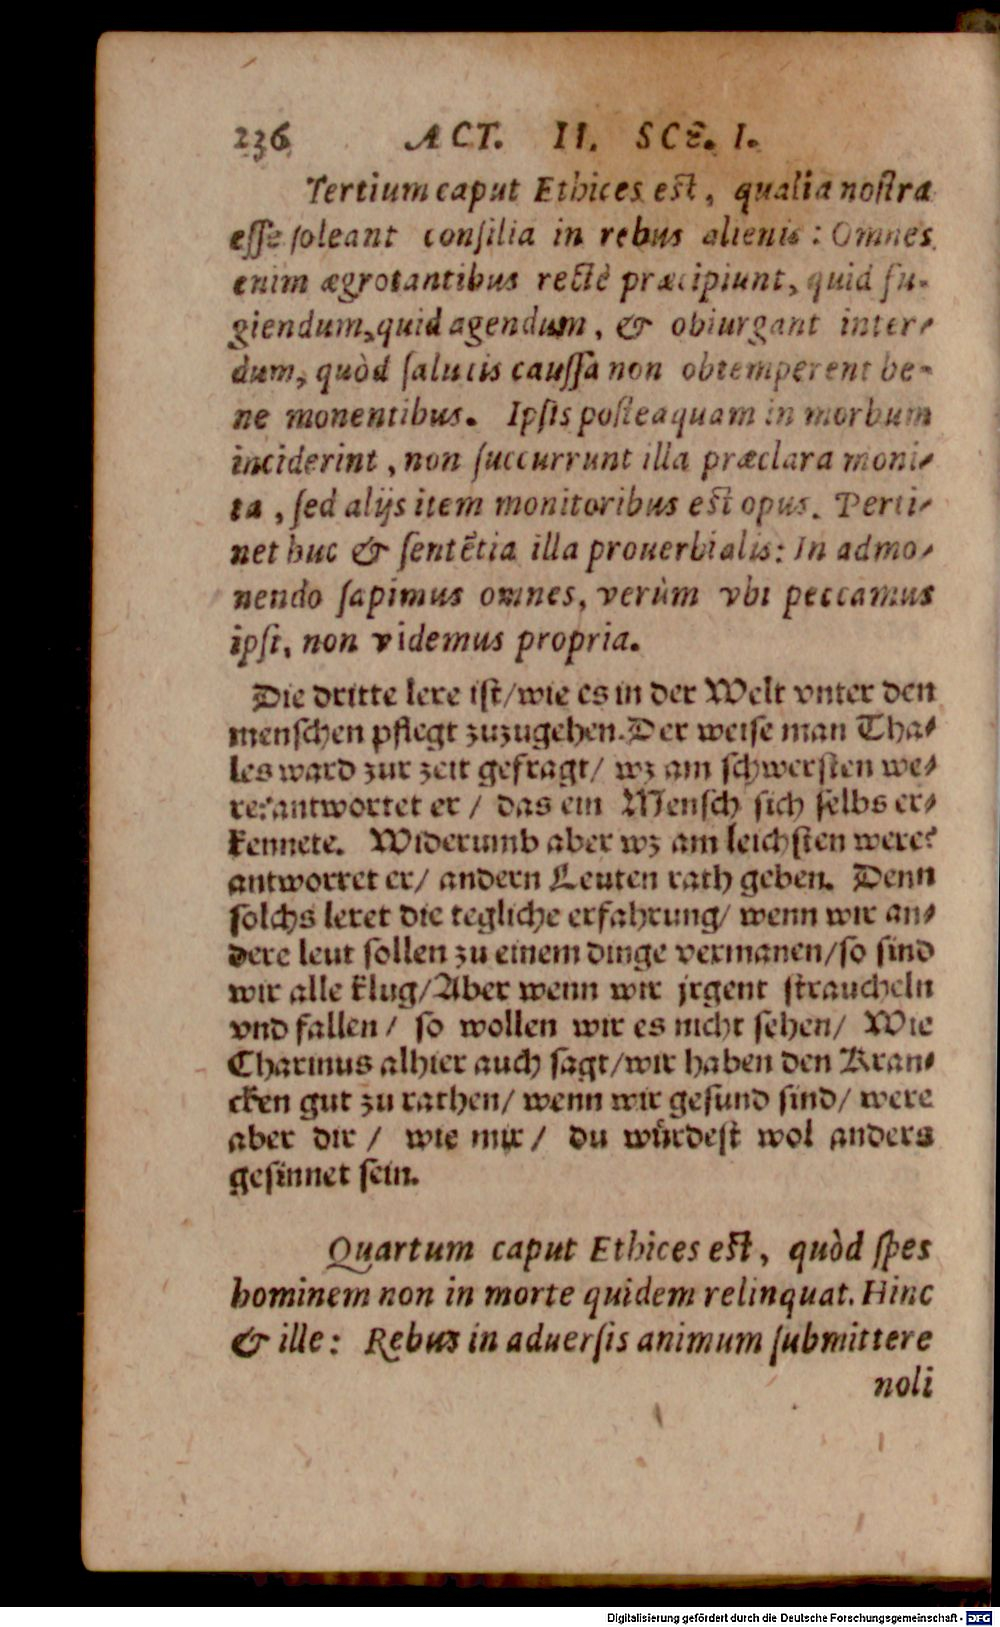 236 ACT. II. SCE. I.
Tertium caput Ethices est, qualia nostra
esse soleant consilia in rebus alienis: Omnes
enim ægrotantibus rectè præcipiunt, quid fu-
giendum, quid agendum, & obiurgant inter-
dum, quòd salutis caussa non obtemperent be-
ne monentibus. Ipsis posteaquam in morbum
inciderint, non succurrunt illa præclara moni-
ta, sed alijs item monitoribus est opus. Perti-
net huc & sentētia illa prouerbialis: In admo-
nendo sapimus omnes, verùm vbi peccamus
ipsi, non videmus propria.
Die dritte lere ist/wie es in der Welt vnter den
menschen pflegt zuzugehen. Der weise man Tha-
les ward zur zeit gefragt/ wz am schwersten we-
re? antwortet er/ das ein Mensch sich selbs er-
kennete. Widerumb aber wz am leichsten were?
antworret er/ andern Leuten rath geben. Denn
solchs leret die tegliche erfahrung/ wenn wir an-
dere leut sollen zu einem dinge vermanen/so sind
wir alle klug/Aber wenn wir jrgent straucheln
vnd fallen/ so wollen wir es nicht sehen/ Wie
Charinus alhier auch sagt/wir haben den Kran-
cken gut zu rathen/ wenn wir gesund sind/ were
aber dir/ wie mir/ du würdest wol anders
gesinnet sein.
Quartum caput Ethices est, quòd spes
hominem non in morte quidem relinquat. Hinc
& ille: Rebus in aduersis animum submittere
noli
Digitalisierung gefördert durch die Deutsche Forschungsgemeinschaft - DFG